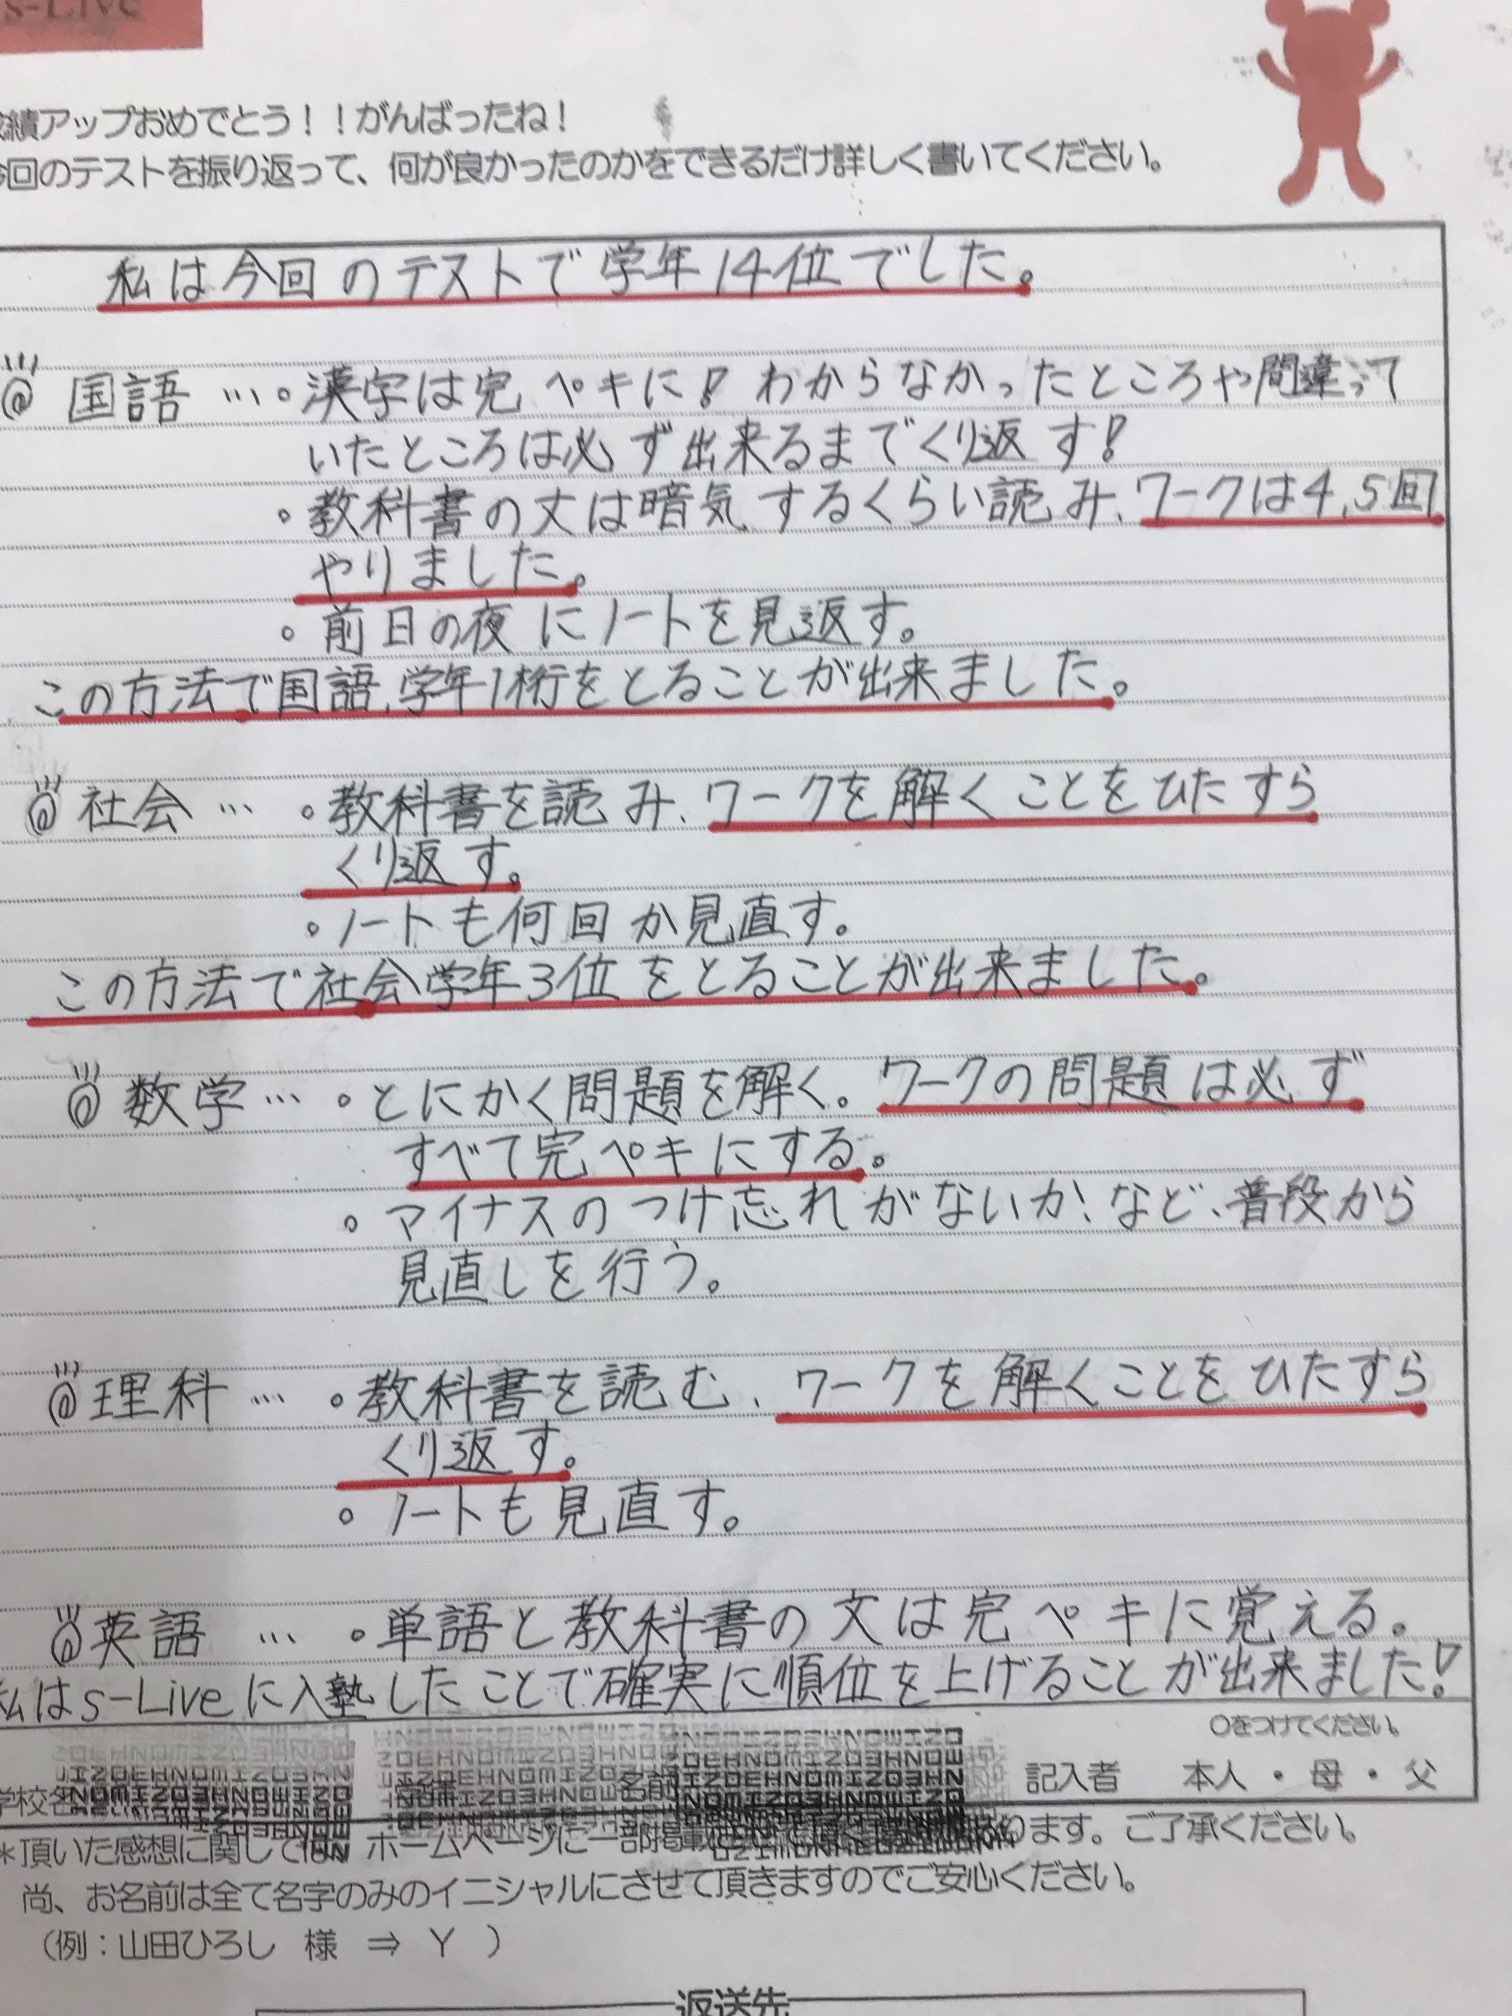 s-Live
績アップおめでとう！！がんばったね！
今回のテストを振り返って、何が良かったのかをできるだけ詳しく書いてください。
私は今回のテストで学年14位でした。
国語…。漢字は完ペキに！わからなかったところや間違って
いたところは必ず出来るまでくり返す！
。教科書の文は暗気するくらい読み、ワークは4,5回
やりました。
。前日の夜にノートを見返す。
この方法で国語、学年1桁をとることが出来ました。
社会…。教科書を読み、ワークを解くことをひたすら
くり返す。
。ノートも何回か見直す。
この方法で社会学年3位をとることが出来ました。
数学…。とにかく問題を解く。ワークの問題は必ず
すべて完ペキにする。
。マイナスのつけ忘れがないか、など、普段から
見直しを行う。
理科…。教科書を読む、ワークを解くことをひたすら
くり返す。
。ノートも見直す。
英語…。単語と教科書の文は完ペキに覚える。
私はs-Liveに入塾したことで確実に順位を上げることが出来ました！
○をつけてください。
学校名 学年 名前 記入者 本人・母・父
＊頂いた感想に関しては、ホームページに一部掲載 ります。ご了承ください。
尚、お名前は全て名字のみのイニシャルにさせて頂きますのでご安心ください。
（例：山田ひろし 様 ⇒ Y ）
返送先